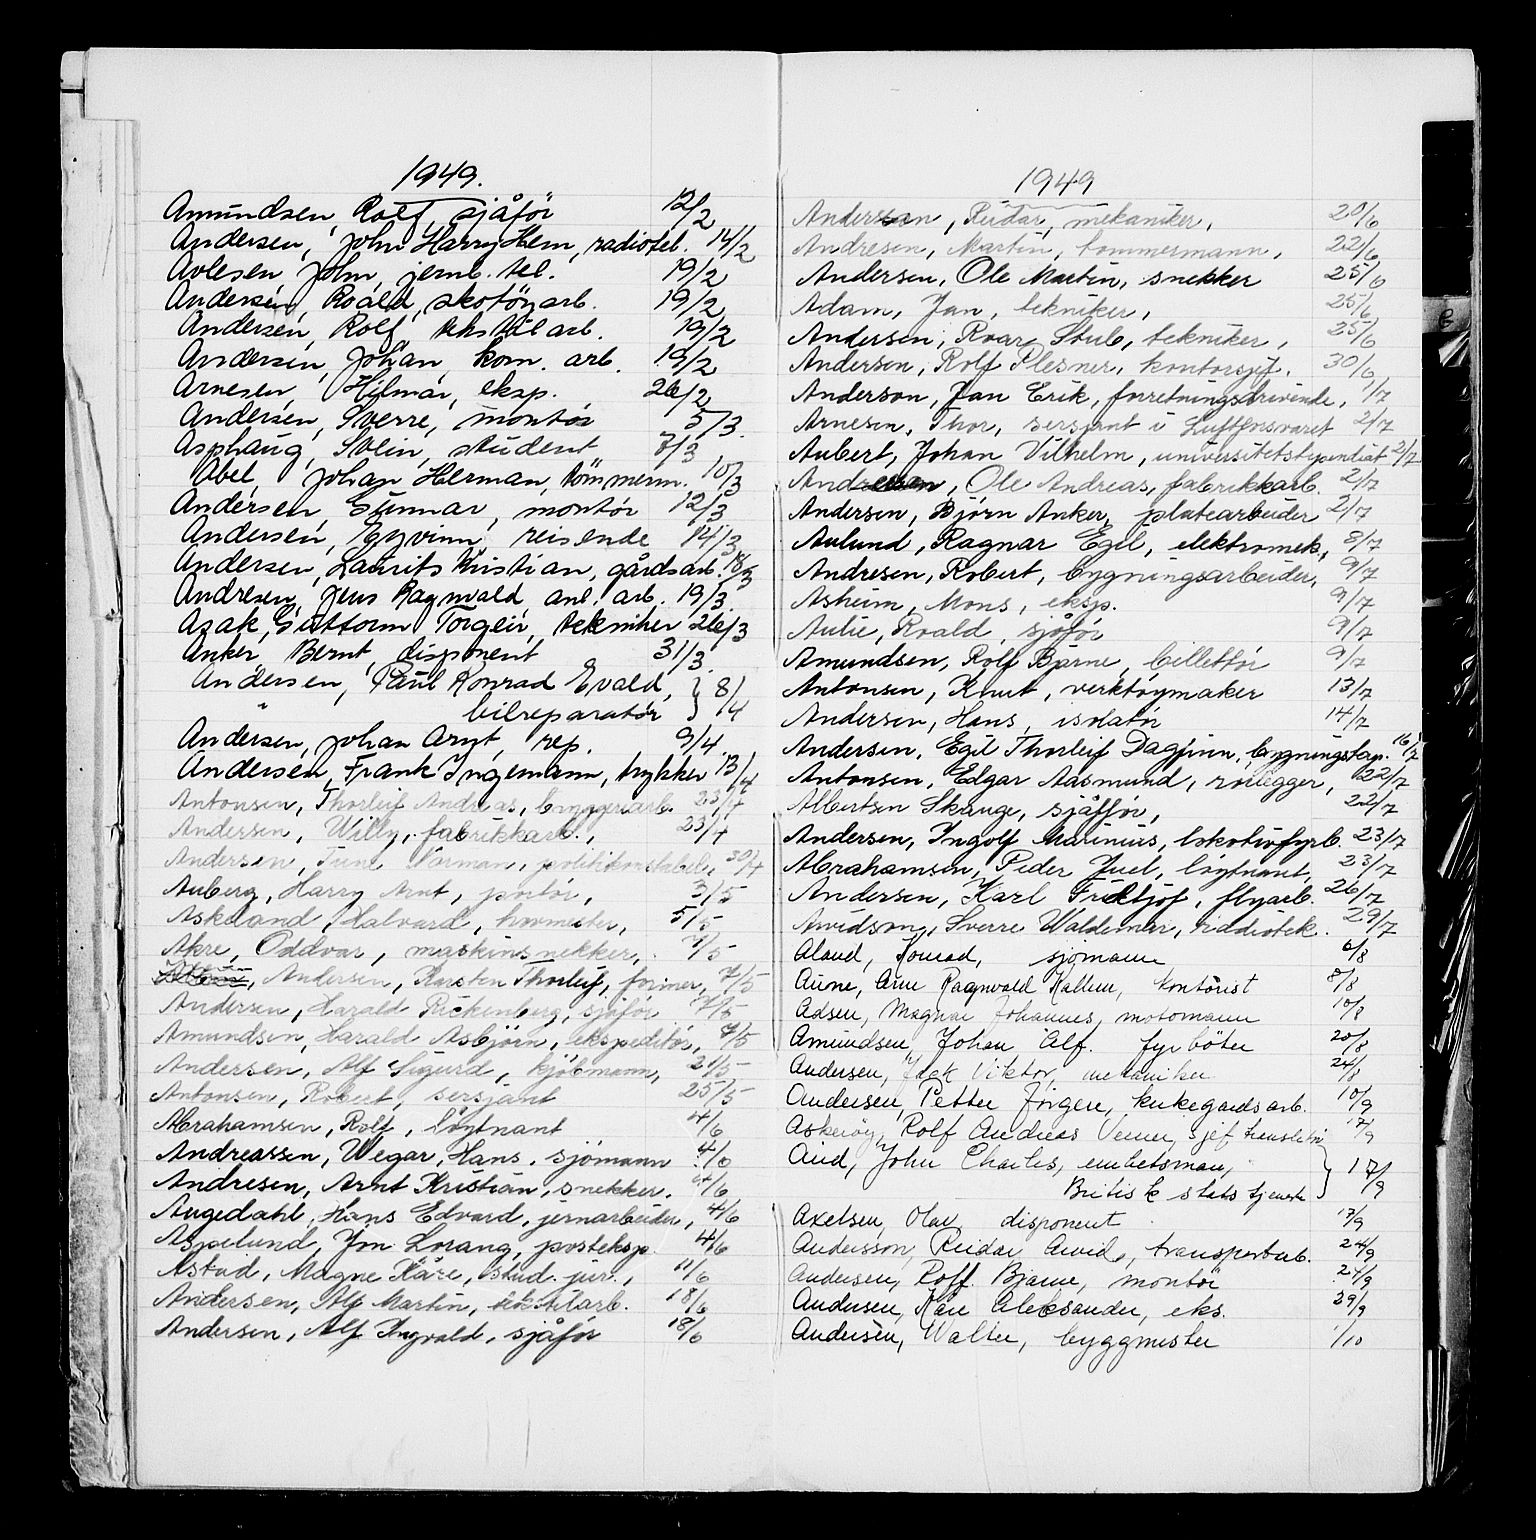 1949.
Amundsen, Rolf, sjåför 12/2
Andersen, John Harry Hem, radiotel. 14/2
Avlesen, John, jernb. tel. 19/2
Andersen, Roald, skotöyarb. 19/2
Andersen, Rolf, tekstilarb. 19/2
Andersen, Johan, kom. arb. 19/2
Arnesen, Hilmar, eksp. 26/2
Andersen, Sverre, montör 5/3.
Asphaug, Svein, student 7/3
Abel, Johan Herman, tömmerm. 10/3
Andersen, Gunnar, montör 12/3
Andersen, Eyvinn, reisende 14/3
Andersen, Laurits Kristian, gårdsarb. 18/3
Andresen, Jens Ragnvald, anl. arb. 19/3.
Azak, Guttorm Torgeir, tekniker 26/3
Anker, Bernt, disponent 31/3.
Andersen, Paul Konrad Evald, } 8/4
" bilreparatör
Andersen, Johan Arnt, rep. 9/4.
Andersen, Frank Ingemann, trykker 13/4
Antonsen, Thorleif Andreas, bryggeriarb. 23/4
Andersen, Willy, fabrikkarb., 23/4
Andersen, Tune Norman, politikonstabel, 30/4
Auberg, Harry Arnt, portör, 3/5
Askeland, Halvard, hovmester, 5/5
Akre, Oddvar, maskinsnekker, 7/5
Andersen, Karsten Thorleif, former, 7/5
Andersen, Harald Rickenberg, sjåför 7/5
Amundsen, Harald Asbjörn, ekspeditör, 7/5
Andersen, Alf Sigurd, kjöbmann, 21/5
Antonsen, Robert, sersjant 25/5
Abrahamsen, Rolf, löytnant 4/6
Andreassen, Wegar, Hans, sjömann 4/6
Andresen, Arnt Kristian, snekker. 4/6
Augedahl, Hans Edvard, jernarbeider, 4/6
Aspelund, Jon Lorang, posteksp. 4/6
Astad, Magne Kåre, stud. jur., 11/6
Andersen, Alf Martin, tekstilarb. 18/6
Andersen, Alf Ingvald, sjåför 18/6
1949
Anderson, Reidar, mekaniker, 20/6
Andresen, Martin, tømmermann, 22/6
Andersen, Ole Martin, snekker 25/6
Adam, Jan, tekniker, 25/6
Andersen, Roar Stub, tekniker, 25/6
Andersen, Rolf Plesner, kontorsjef, 30/6
Anderson, Jan Erik, forretningsdrivende, 1/7
Arnesen, Thor, sersjant i Luftforsvaret 2/7
Aubert, Johan Vilhelm, universitetstipendiat 2/7
Andressen, Ole Andreas, fabrikkarb. 2/7
Andersen, Björn Anker, platearbeider 2/7
Aulund, Ragnar Egil, elektromek., 8/7
Andresen, Robert, bygningsarbeider, 9/7
Asheim, Mons, eksp. 9/7
Aulie, Roald, sjåför 9/7
Amundsen, Rolf Bjarne, billettör 9/7
Antonsen, Knut, verktöymaker 13/7
Andersen, Hans, isolatör 14/7
Andersen, Egil Thorleif Dagfinn, bygningstap. 16/7
Antonsen, Edgar Aasmund, rörlegger, 22/7
Albertsen Skauge, sjåför, 22/7
Andersen, Ingolf Marinius, lokotivfyrb. 23/7
Abrahamsen, Peder Juel, löytnant, 23/7
Andersen, Karl Fridtjof, flyarb. 26/7
Arvidson, Sverre Waldemar, riddiotek. 29/7
Aland, Konrad, sjømann 6/8
Aune, Arne Ragnvald Hallem, kontorist 8/8
Adsen, Magnar Johannes, motomann 10/8
Amundsen, Johan Alf. fyrböter 20/8
Andersen, Jack Viktor, mekaniker 24/8
Andersen, Petter Jörgen, kirkegaardsarb. 10/9
Askeröy, Rolf Andreas Verner, sjef translatör 17/9
Aird, John Charles, embetsman, } 17/9
Britisk stats tjeneste
Axelsen, Olav, disponent 17/9
Andersson, Reidar Arvid, transportarb. 24/9
Andersen, Rolf Bjarne, montör 24/9
Andersen, Kåre Aleksander, eks. 29/9
Andersen, Walter, byggmester 1/10